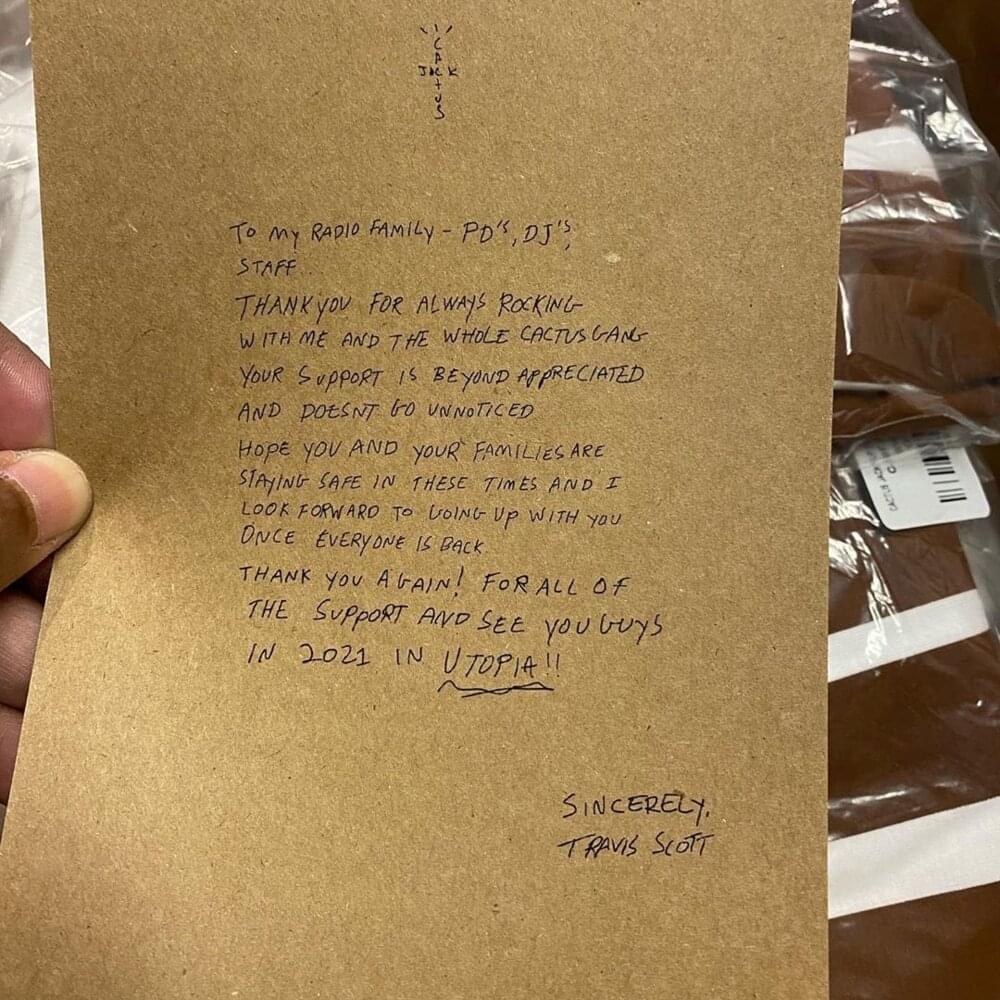 CACTUS
JACK
TO MY RADIO FAMILY - PD'S, DJ'S,
STAFF.
THANK YOU FOR ALWAYS ROCKING
WITH ME AND THE WHOLE CACTUS GANG
YOUR SUPPORT IS BEYOND APPRECIATED
AND DOESNT GO UNNOTICED
HOPE YOU AND YOUR FAMILIES ARE
STAYING SAFE IN THESE TIMES AND I
LOOK FORWARD TO GOING UP WITH YOU
ONCE EVERYONE IS BACK
THANK YOU AGAIN! FOR ALL OF
THE SUPPORT AND SEE YOU GUYS
IN 2021 IN UTOPIA!!
SINCERELY,
TRAVIS SCOTT
CACTUS JACK